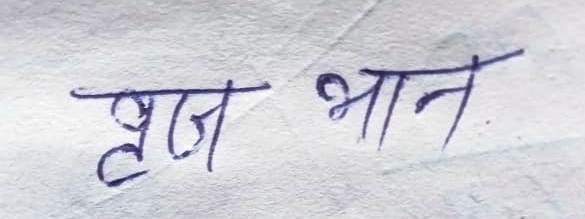 बृज भान